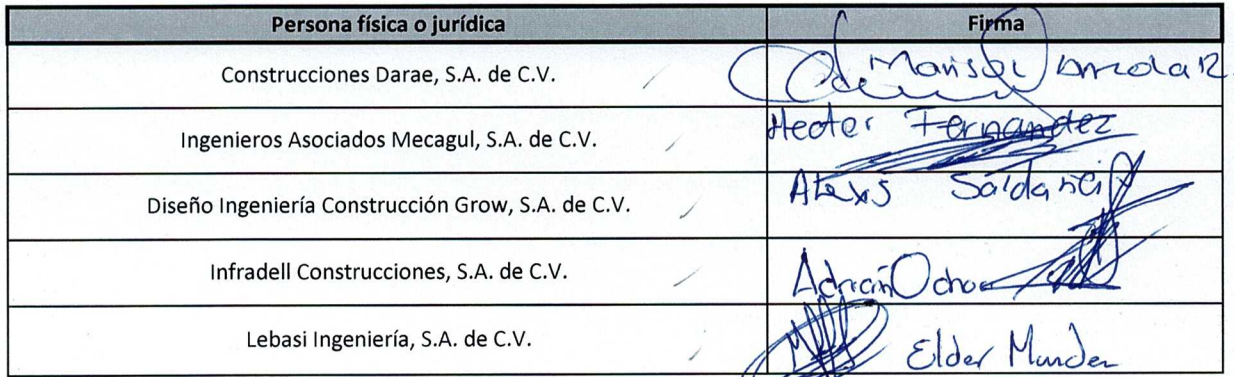 Persona física o jurídica Firma
Construcciones Darae, S.A. de C.V. Marisol
Ingenieros Asociados Mecagul, S.A. de C.V. Hector Fernandez
Diseño Ingeniería Construcción Grow, S.A. de C.V. Alexis Saldaña
Infradell Construcciones, S.A. de C.V. Adrián Ochoa
Lebasi Ingeniería, S.A. de C.V. Elder